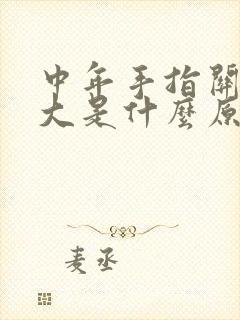 中年手指關
大是什麼原
麦丞